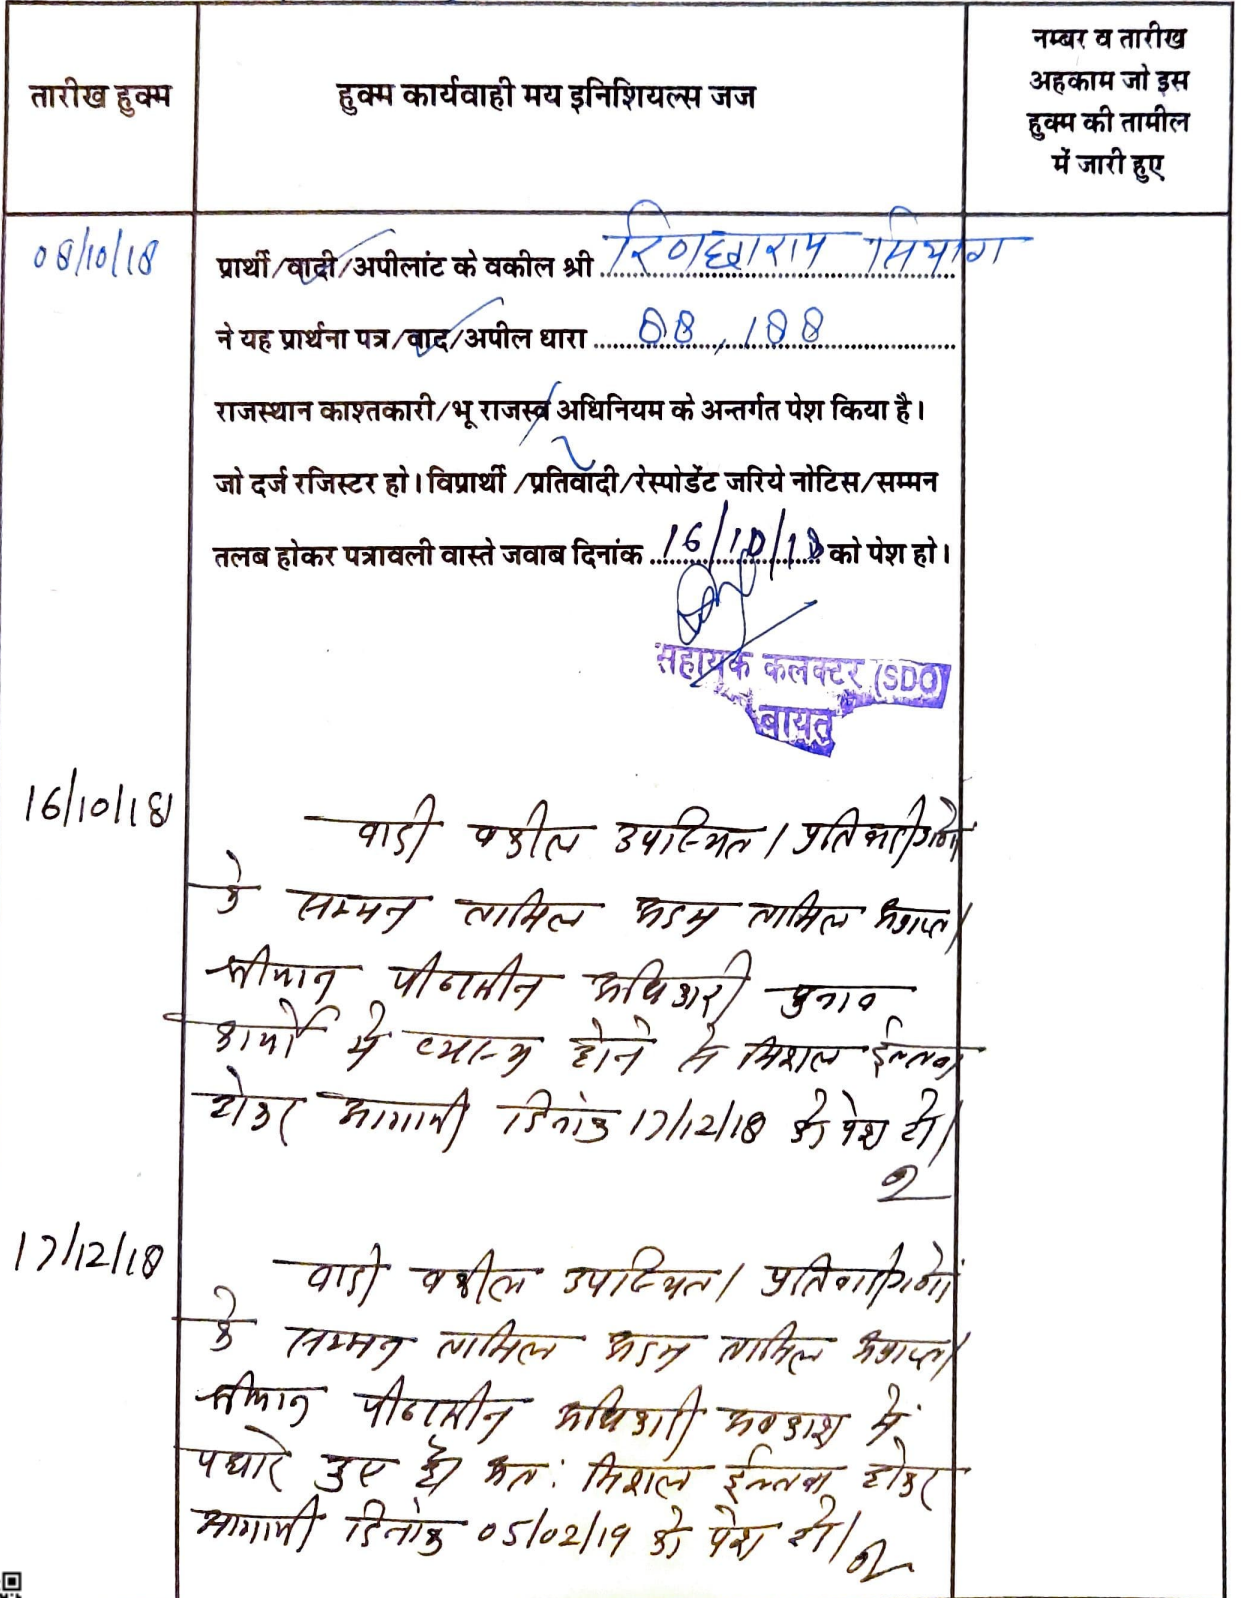 तारीख हुक्म
हुक्म कार्यवाही मय इनिशियल्स जज
नम्बर व तारीख
अहकाम जो इस
हुक्म की तामील
में जारी हुए
08/10/18
प्रार्थी/वादी/अपीलांट के वकील श्री रिणछाराम सियाग
ने यह प्रार्थना पत्र/वाद/अपील धारा 88, 188
राजस्थान काश्तकारी/भू राजस्व अधिनियम के अन्तर्गत पेश किया है।
जो दर्ज रजिस्टर हो। विप्रार्थी /प्रतिवादी/रेस्पोडेंट जरिये नोटिस/सम्मन
तलब होकर पत्रावली वास्ते जवाब दिनांक 16/10/18 को पेश हो।
सहायक कलक्टर (SDO)
बायतु
16/10/18
वादी वकील उपस्थित। प्रतिवादीगणों
के सम्मन तामिल अदम तामिल अप्राप्त।
श्रीमान पीठासीन अधिकारी चुनाव
कार्यो में व्यस्त होने से मिशल ईल्तवा
होकर आगामी दिनांक 17/12/18 को पेश हो।
17/12/18
वादी वकील उपस्थित। प्रतिवादीगणों
के सम्मन तामिल अदम तामिल अप्राप्त।
श्रीमान पीठासीन अधिकारी अवकाश में
पधारे हुए है। अतः मिशल ईल्तवा होकर
आगामी दिनांक 05/02/19 को पेश हो।